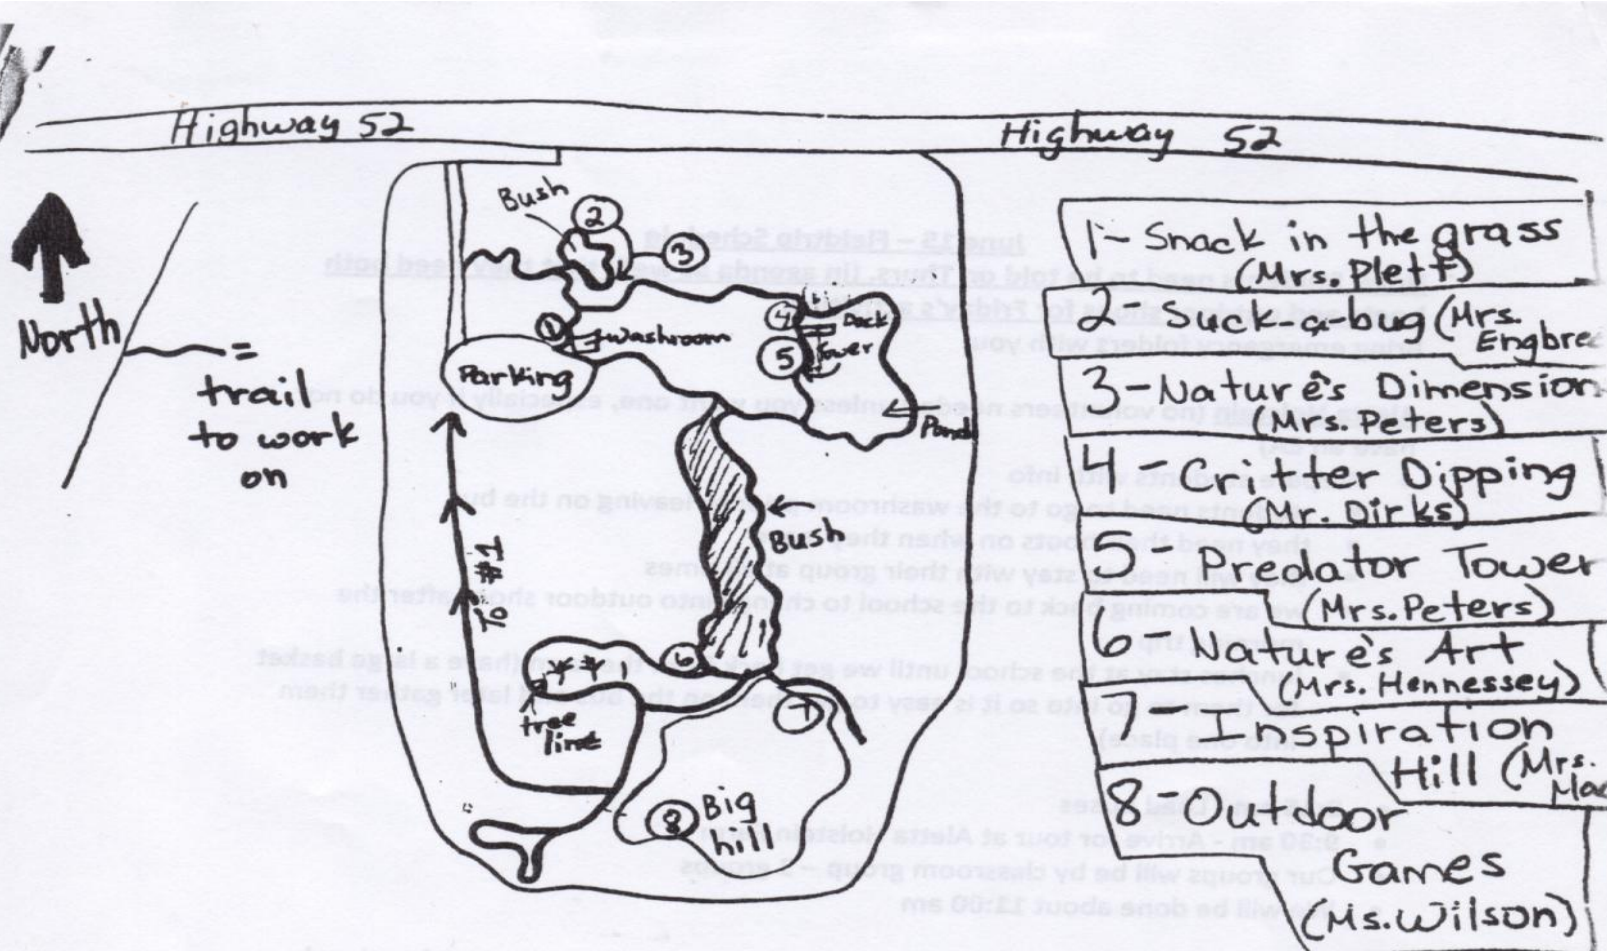 Highway 52
Highway 52
North
=
trail
to work
on
Bush
2
3
1
washroom
4
Dock
5
Tower
Parking
Pond
Bush
#1
6
tree
line
7
8 Big
hill
1- Snack in the grass
(Mrs. Plett)
2- Suck-a-bug (Mrs.
3- Nature's Dimension
(Mrs. Peters)
4- Critter Dipping
(Mr. Dirks)
5- Predator Tower
(Mrs. Peters)
6- Nature's Art
(Mrs. Hennessey)
7- Inspiration
Hill (Mrs.
8- Outdoor
Games
(Ms. Wilson)